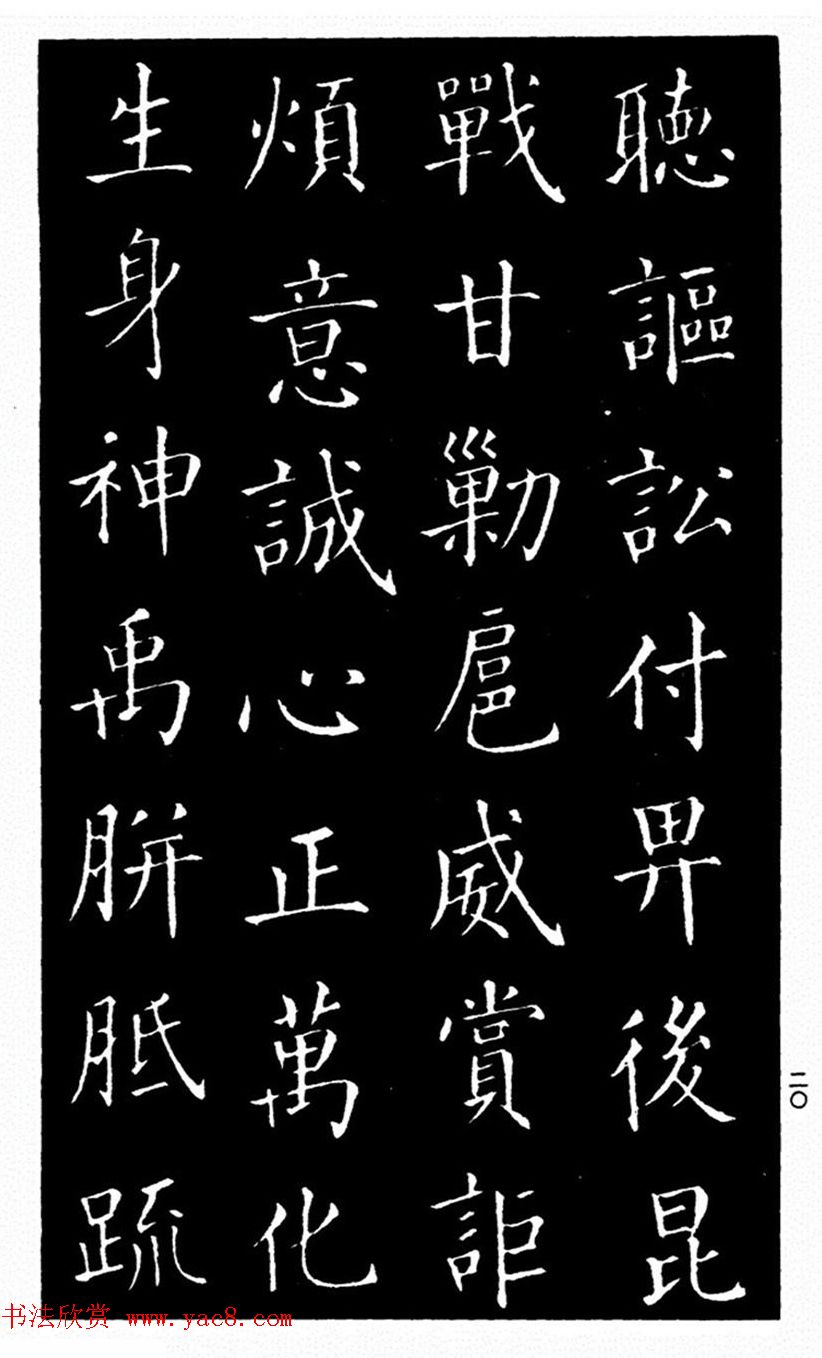 聽謳訟付畀後昆
戰甘勦扈威賞詎
煩意誠心正萬化
生身神禹胼胝疏
二〇
书法欣赏 www.yac8.com